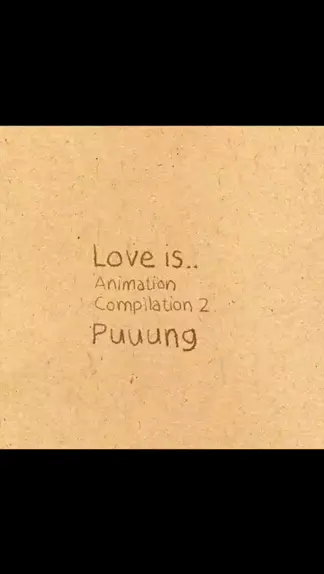 Love is..
Animation
Compilation 2
Puuung